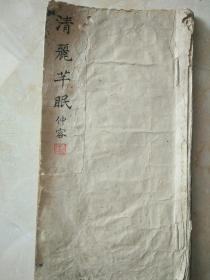 清麗芊眠
仲容